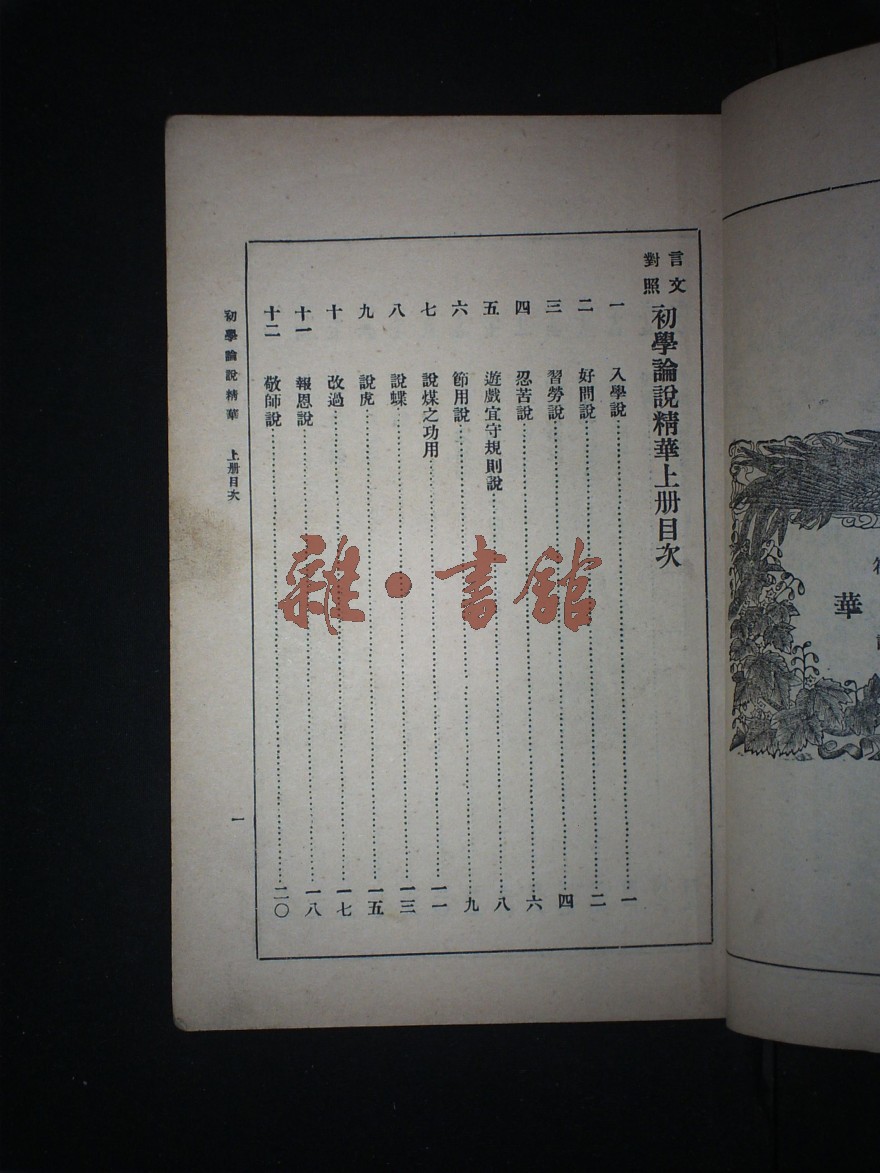 言文對照 初學論說精華上册目次
一 入學說 一
二 好問說 二
三 習勞說 四
四 忍苦說 六
五 遊戲宜守規則說 八
六 節用說 九
七 說煤之功用 一一
八 說蝶 一三
九 說虎 一五
十 改過 一七
十一 報恩說 一八
十二 敬師說 二〇
初學論說精華 上册目次 一
雜·書館
華